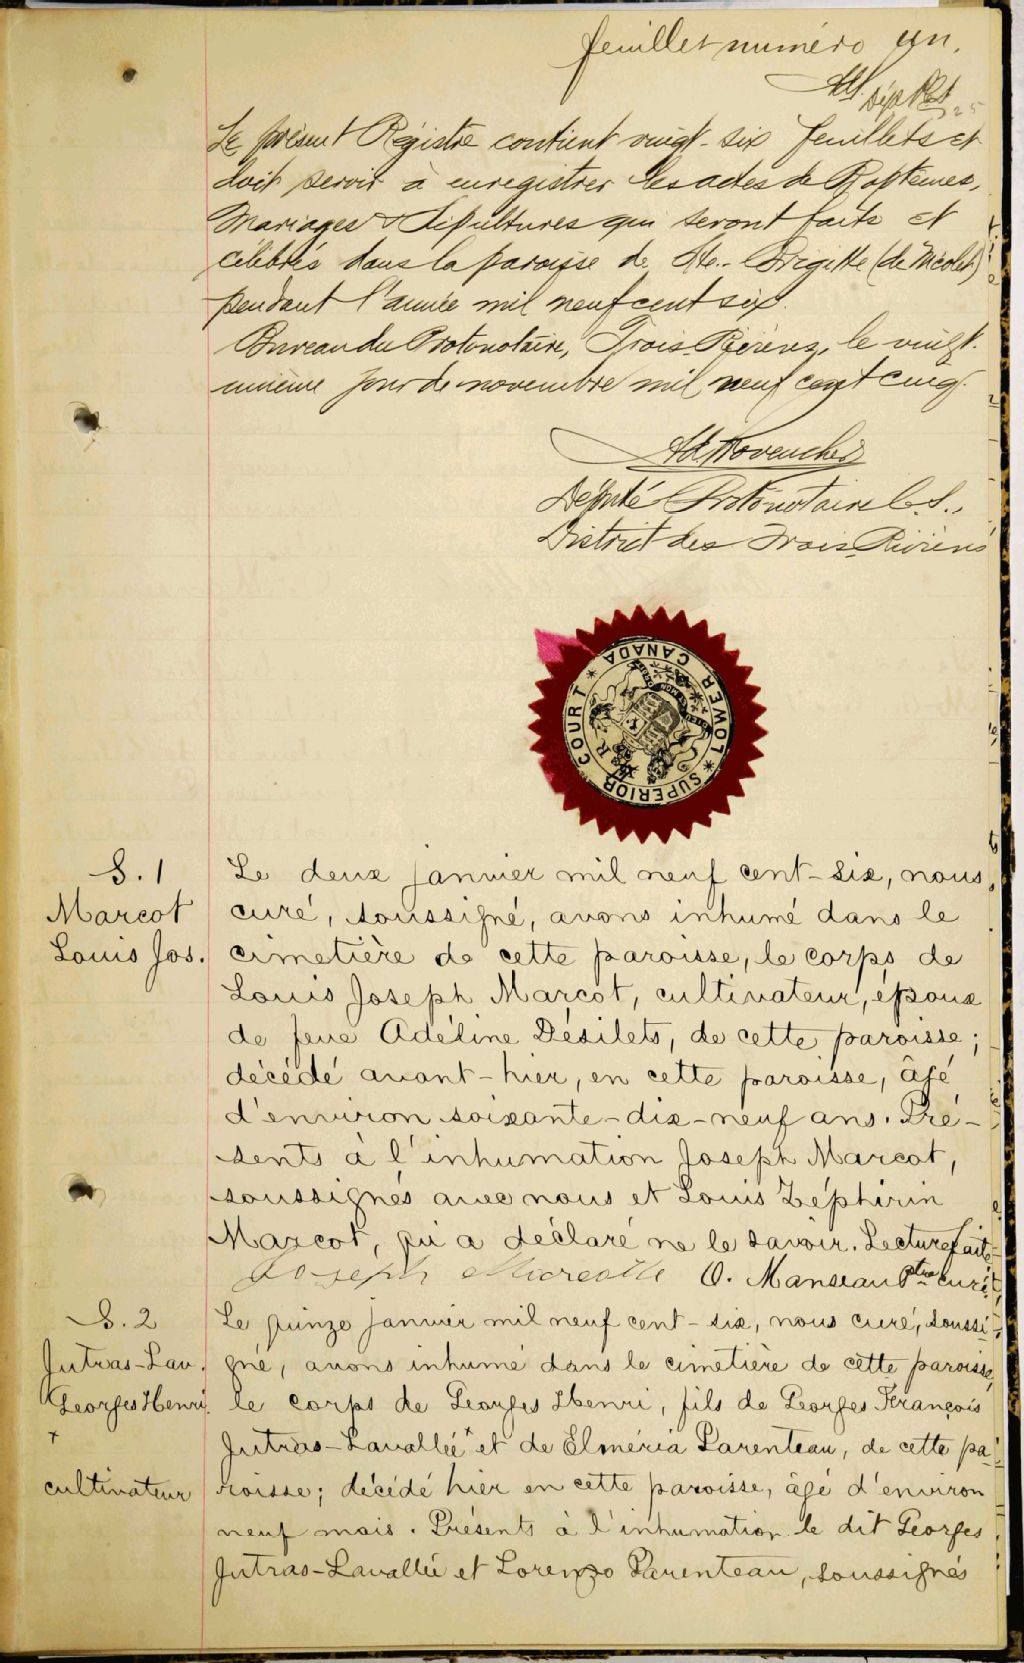 feuillet numéro un.
Dép. P.C.S.
Le présent Régistre contient vingt-six feuillets et
doit servir à enregistrer les actes de Baptêmes,
Mariages & Sépultures qui seront faits et
célébrés dans la paroisse de Ste.-Brigitte (de Nicolet)
pendant l'année mil neuf cent six.
Bureau du Protonotaire, Trois-Rivières, le vingt-
unième jour de novembre mil neuf cent cinq.
Ad Provencher
Député Protonotaire C.S.,
District des Trois-Rivières
SUPERIOR COURT * LOWER CANADA *
S. 1
Marcot
Louis Jos.
Le deux janvier mil neuf cent-six, nous,
curé, soussigné, avons inhumé dans le
cimetière de cette paroisse, le corps de
Louis Joseph Marcot, cultivateur, époux
de feue Adéline Désilets, de cette paroisse;
décédé avant-hier, en cette paroisse, âgé
d'environ soixante-dix-neuf ans. Pré-
sents à l'inhumation Joseph Marcot,
soussignés avec nous et Louis Zéphirin
Marcot, qui a déclaré ne le savoir. Lecture faite.
Joseph Marcotte O. Manseau Ptre curé
S. 2
Jutras-Lav.
Georges Henri
+
cultivateur
Le quinze janvier mil neuf cent-six, nous curé, soussi-
gné, avons inhumé dans le cimetière de cette paroisse,
le corps de Georges Henri, fils de Georges François
Jutras-Lavallée + et de Elméria Parenteau, de cette pa-
roisse; décédé hier en cette paroisse, âgé d'environ
neuf mois. Présents à l'inhumation le dit Georges
Jutras-Lavallée et Lorenzo Parenteau, soussignés